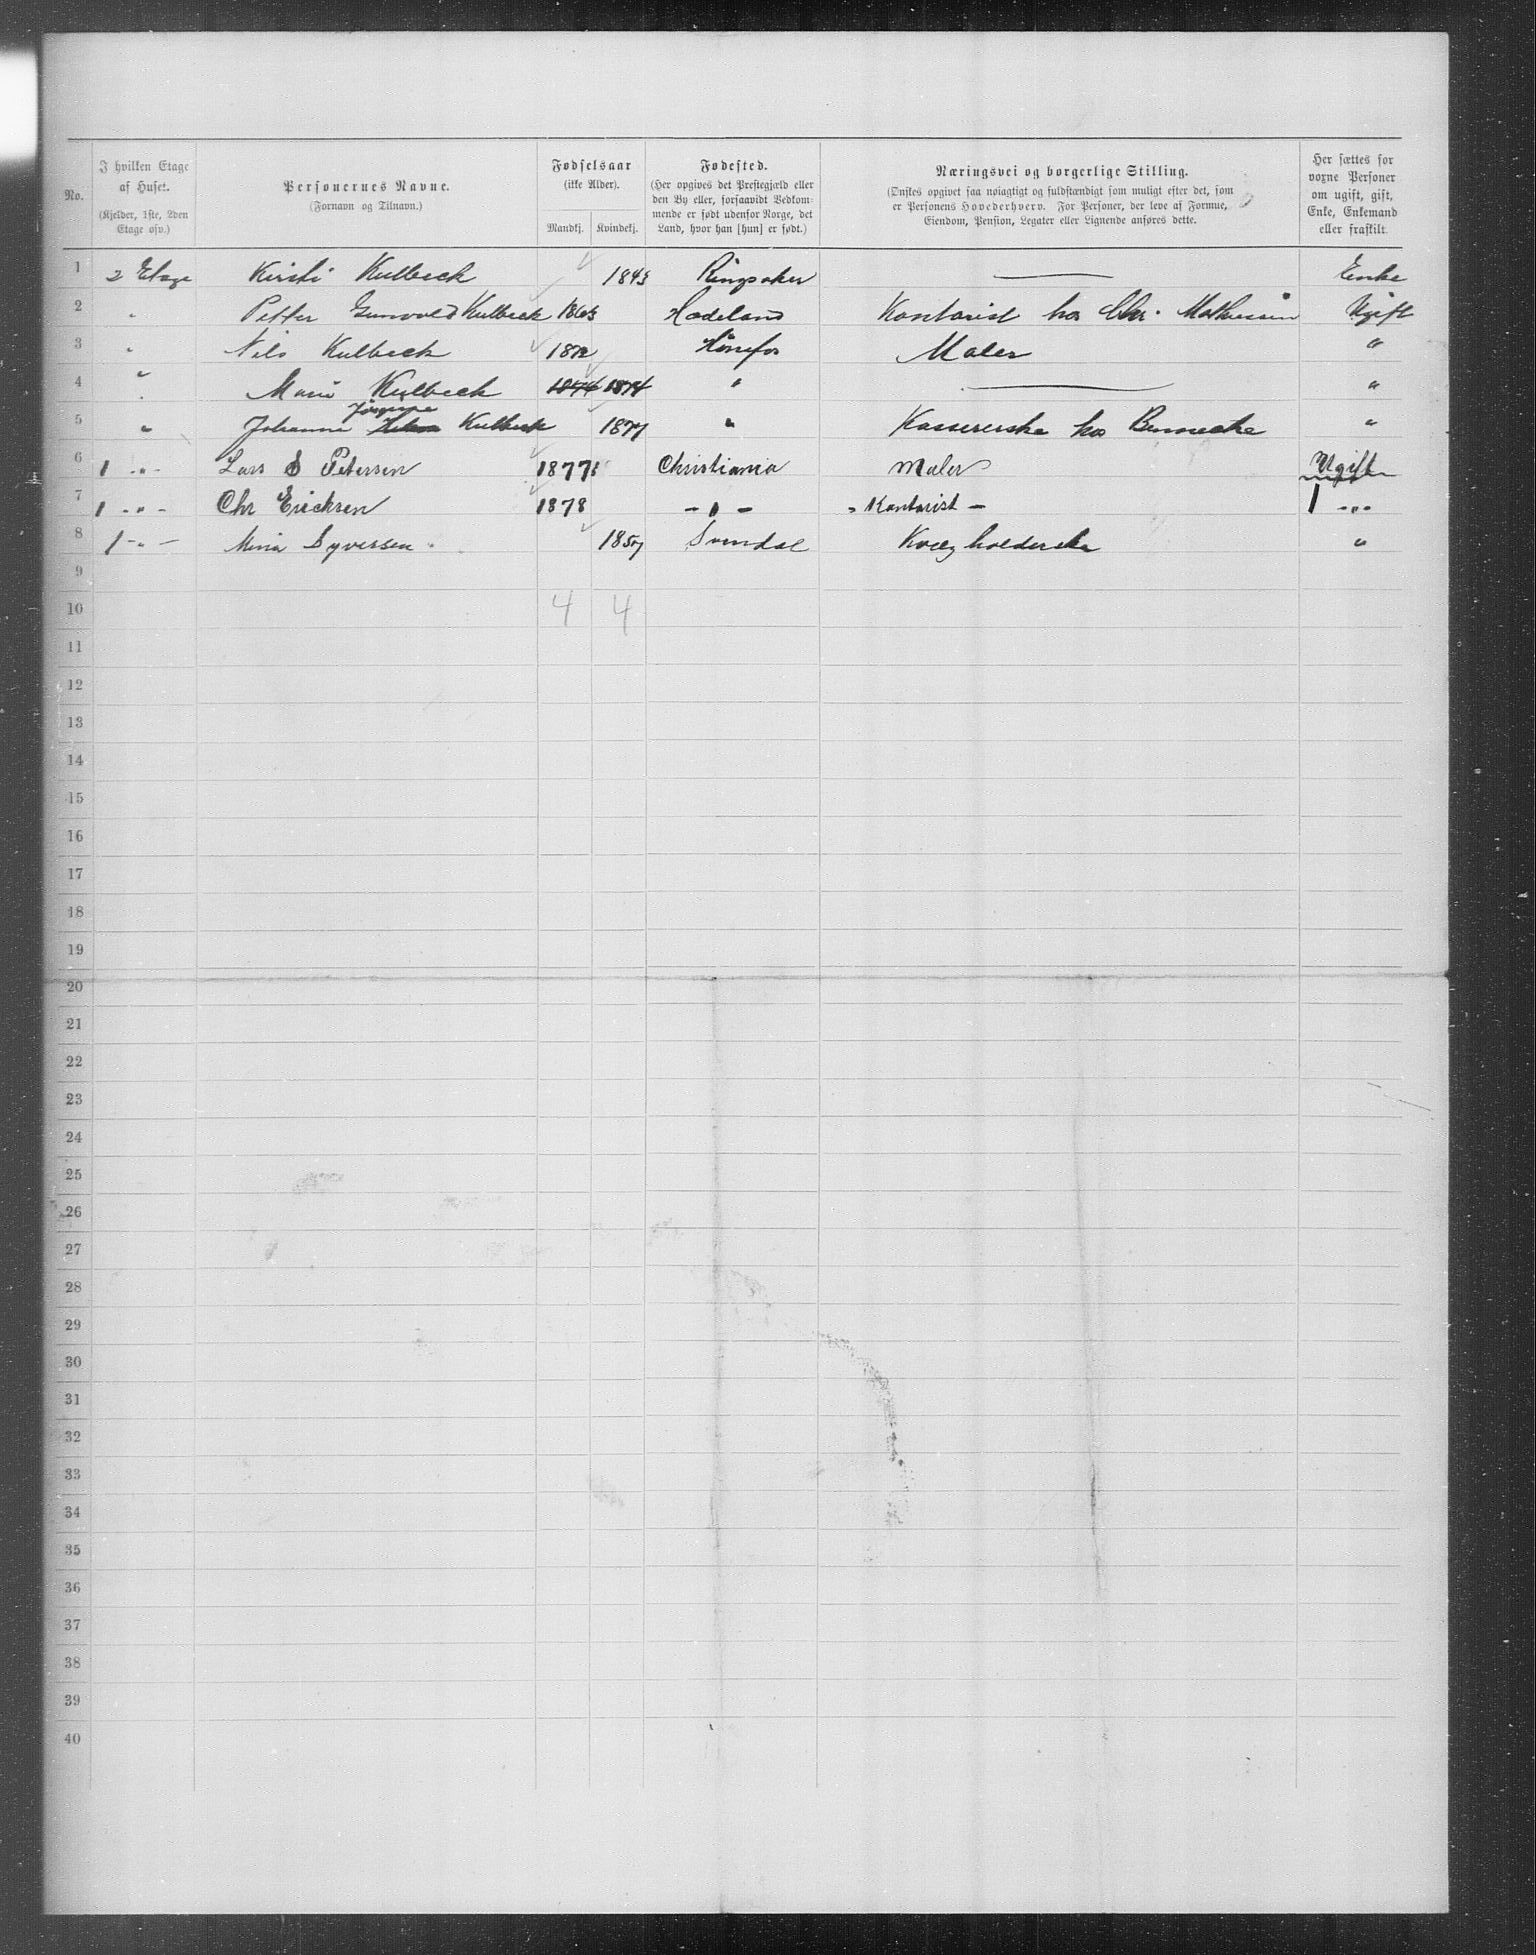 No. | I hvilken Etage af Huset. (Kjelder, 1ste, 2den Etage osv.) | Personernes Navne. (Fornavn og Tilnavn.) | Fødselsaar (ikke Alder). Mandkj. | Kvindekj. | Fødested. (Her opgives det Prestegjæld eller den By eller, forsaavidt Vedkommende er født udenfor Norge, det Land, hvor han [hun] er født.) | Næringsvei og borgerlige Stilling. (Ønskes opgivet saa nøiagtigt og fuldstændigt som muligt efter det, som er Personens Hovederhverv. For Personer, der leve af Formue, Eiendom, Pension, Legater eller Lignende anføres dette. | Her sættes for voxne Personer om ugift, gift, Enke, Enkemand eller fraskilt.
1 2 Etage Kirsti Kulbeck 1843 Ringsaker — Enke
2 " Petter Gunvald Kulbeck 1863 Hadeland Kontorist hos Chr. Mathiesen Ugift
3 " Nils Kulbeck 1872 Hønefos Maler "
4 " Marie Kulbeck 1874 1874 " — "
5 " Johanne Jørgine Kulbeck 1877 " Kassererske hos "
6 1 -"- Lars S Petersen 1877 Christiania Maler Ugift
7 1 -"- Chr Ericksen 1878 -"- Kontorist - 1 -"-
8 1 -"- Mina Syversen 1857 Kvægholderske "
9
10 4 4
11
12
13
14
15
16
17
18
19
20
21
22
23
24
25
26
27
28
29
30
31
32
33
34
35
36
37
38
39
40